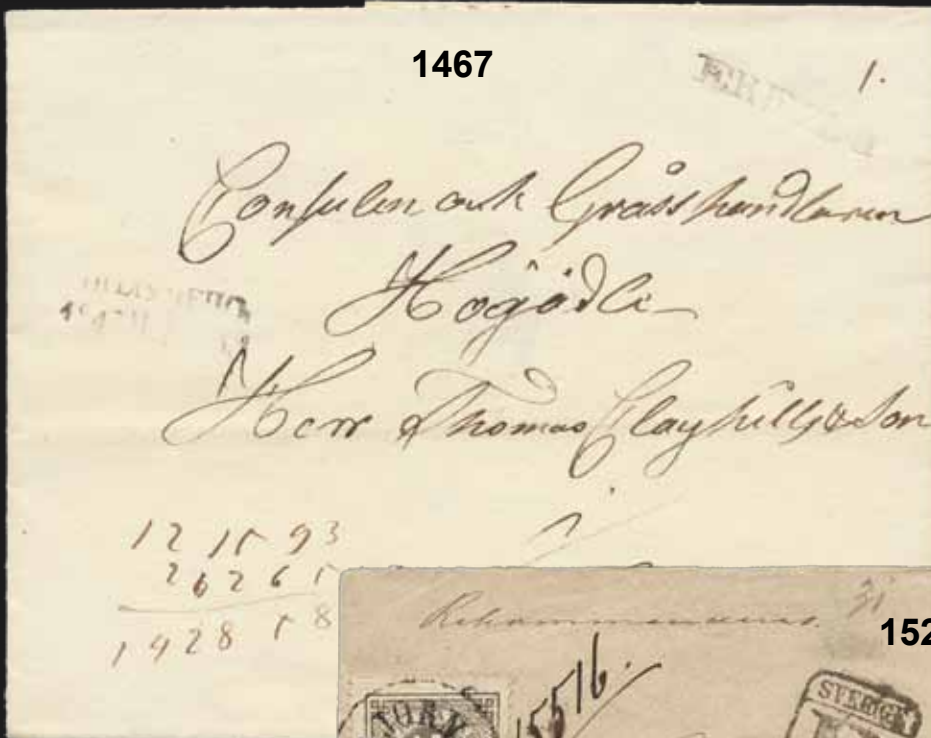 1467
1.
Consulen och Grosshandlaren
Högädle
Herr Thomas Clayhills & Son
i
12 15 93
26265
Rekommenderas.
152
5516.
SVERIGE
TORN